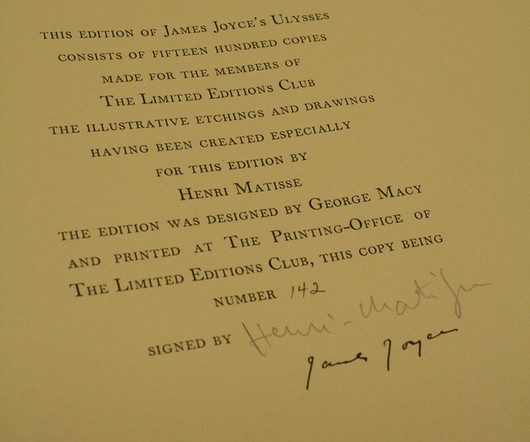 THIS EDITION OF JAMES JOYCE'S ULYSSES
CONSISTS OF FIFTEEN HUNDRED COPIES
MADE FOR THE MEMBERS OF
THE LIMITED EDITIONS CLUB
THE ILLUSTRATIVE ETCHINGS AND DRAWINGS
HAVING BEEN CREATED ESPECIALLY
FOR THIS EDITION BY
HENRI MATISSE
THE EDITION WAS DESIGNED BY GEORGE MACY
AND PRINTED AT THE PRINTING-OFFICE OF
THE LIMITED EDITIONS CLUB, THIS COPY BEING
NUMBER 142
SIGNED BY Henri-Matisse
James Joyce